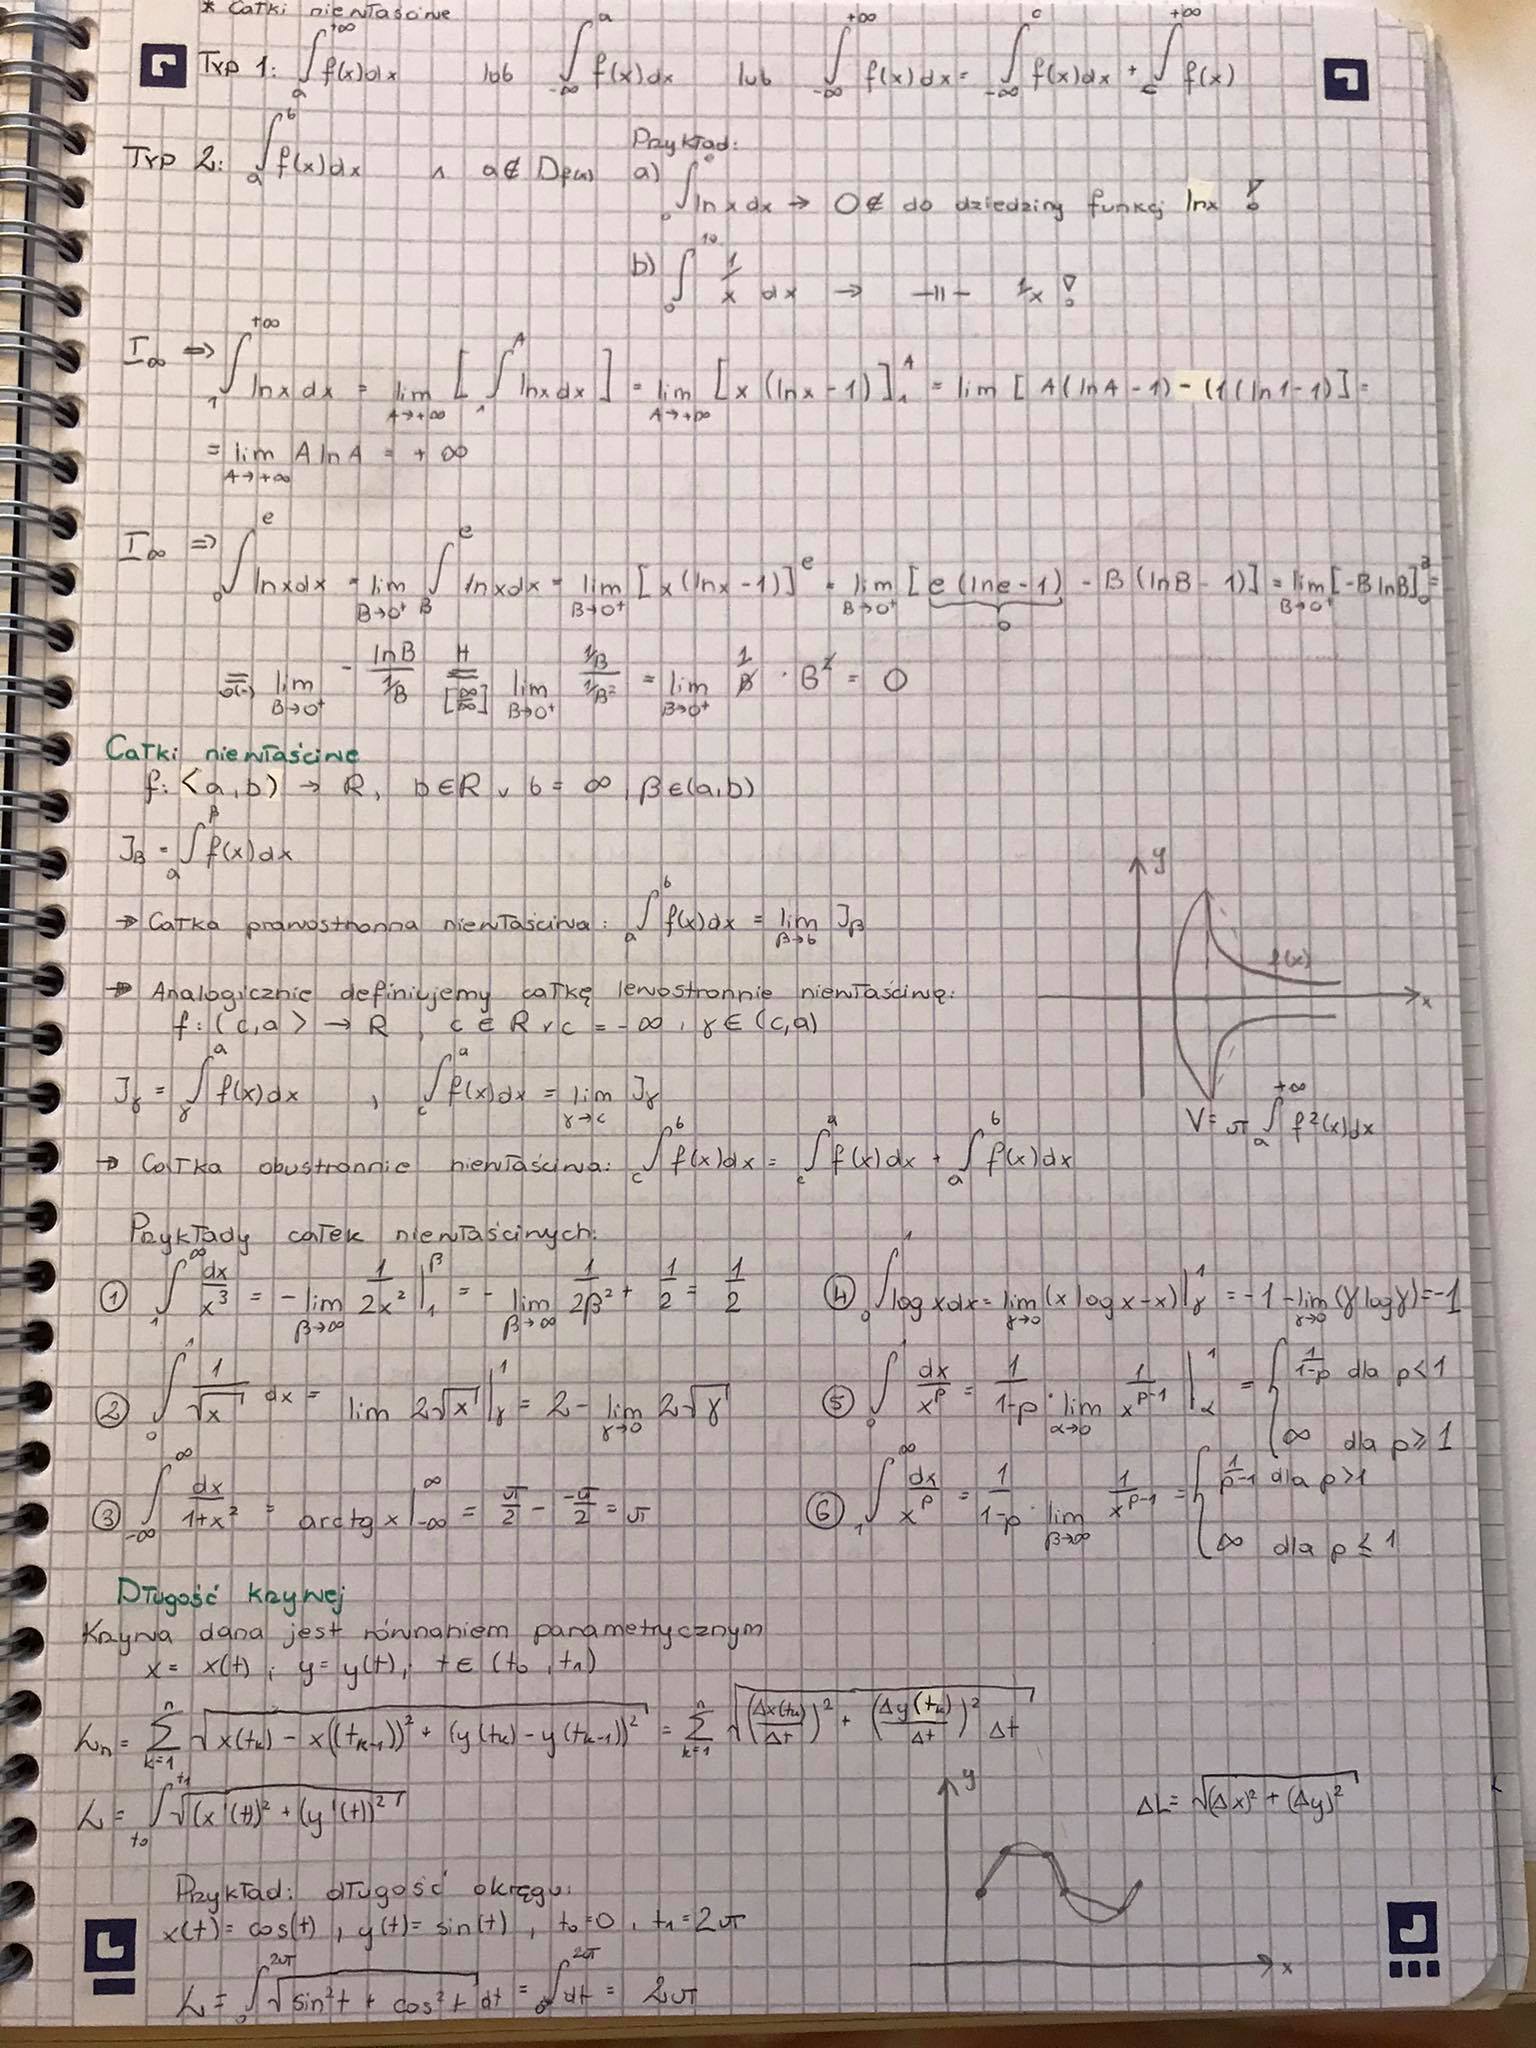 * Całki niewłaściwe
Typ 1: ∫_a^{+∞} f(x)dx lub ∫_{-∞}^a f(x)dx lub ∫_{-∞}^{+∞} f(x)dx = ∫_{-∞}^c f(x)dx + ∫_c^{+∞} f(x)
Typ 2: ∫_a^b f(x)dx ∧ a∉D_{f(x)} Przykład:
a) ∫_0^e ln x dx → 0∉ do dziedziny funkcj lnx !
b) ∫_0^{10} 1/x dx → -||- 1/x !
I_∞ ⇒ ∫_1^{+∞} lnxdx = lim_{A→+∞} [∫_1^A lnxdx] = lim_{A→+∞} [x(lnx-1)]_1^A = lim [A(lnA-1)-(1(ln1-1)] =
= lim_{A→+∞} A lnA = +∞
I_∞ ⇒ ∫_0^e lnxdx = lim_{B→0⁺} ∫_B^e lnxdx = lim_{B→0⁺} [x(lnx-1)]^e = lim_{B→0⁺} [e(lne-1) - B(lnB-1)] = lim_{B→0⁺} [-BlnB]_0^B =
0
= lim_{B→0⁺} - lnB/(1/B) =^H_{[∞/∞]} lim_{B→0⁺} (1/B)/(1/B²) = lim_{B→0⁺} 1/B · B² = 0
Całki niewłaściwe
f: <a,b) → R, b∈R ∨ b = ∞, β∈(a,b)
J_β = ∫_a^β f(x)dx
→ Całka prawostronna niewłaściwa: ∫_a^b f(x)dx = lim_{β→b} J_β
→ Analogicznie definiujemy całkę lewostronnie niewłaściwą:
f: (c,a> → R, c∈R ∨ c = -∞, γ∈(c,a)
J_γ = ∫_γ^a f(x)dx , ∫_c^a f(x)dx = lim_{γ→c} J_γ
→ Całka obustronnie niewłaściwa: ∫_c^b f(x)dx = ∫_c^a f(x)dx + ∫_a^b f(x)dx
y
f(x)
x
V = π ∫_a^{+∞} f²(x)dx
Przykłady całek niewłaściwych:
① ∫_1^∞ dx/x³ = -lim_{β→∞} 1/2x² |_1^β = -lim_{β→∞} 1/2β² + 1/2 = 1/2
② ∫_0^1 1/√x dx = lim 2√x |_γ^1 = 2 - lim_{γ→0} 2√γ
③ ∫_{-∞}^∞ dx/1+x² = arctg x |_{-∞}^∞ = π/2 - -π/2 = π
④ ∫_0^1 logxdx = lim_{γ→0} (x logx-x)|_γ^1 = -1 - lim_{γ→0} (γ logγ) = -1
⑤ ∫_0^1 dx/x^p = 1/1-p · lim_{α→0} 1/x^{p-1} |_α^1 = { 1/1-p dla p<1
∞ dla p≥1
⑥ ∫_1^∞ dx/x^p = 1/1-p · lim_{β→∞} 1/x^{p-1} = { 1/p-1 dla p>1
∞ dla p≤1
Długość krzywej
Krzywa dana jest równaniem parametrycznym
x = x(t), y = y(t), t∈(t₀, t₁)
L_n = Σ_{k=1}^n √(x(t_k) - x((t_{k-1}))² + (y(t_k) - y(t_{k-1}))² = Σ_{k=1}^n √(Δx(t_k)/Δt)² + (Δy(t_k)/Δt)² Δt
L = ∫_{t₀}^{t₁} √(x'(t)² + (y'(t))²
y
x
ΔL = √(Δx)² + (Δy)²
Przykład: długość okręgu:
x(t) = cos(t), y(t) = sin(t), t₀=0, t₁=2π
L = ∫_0^{2π} √sin²t + cos²t dt = ∫_0^{2π} dt = 2π